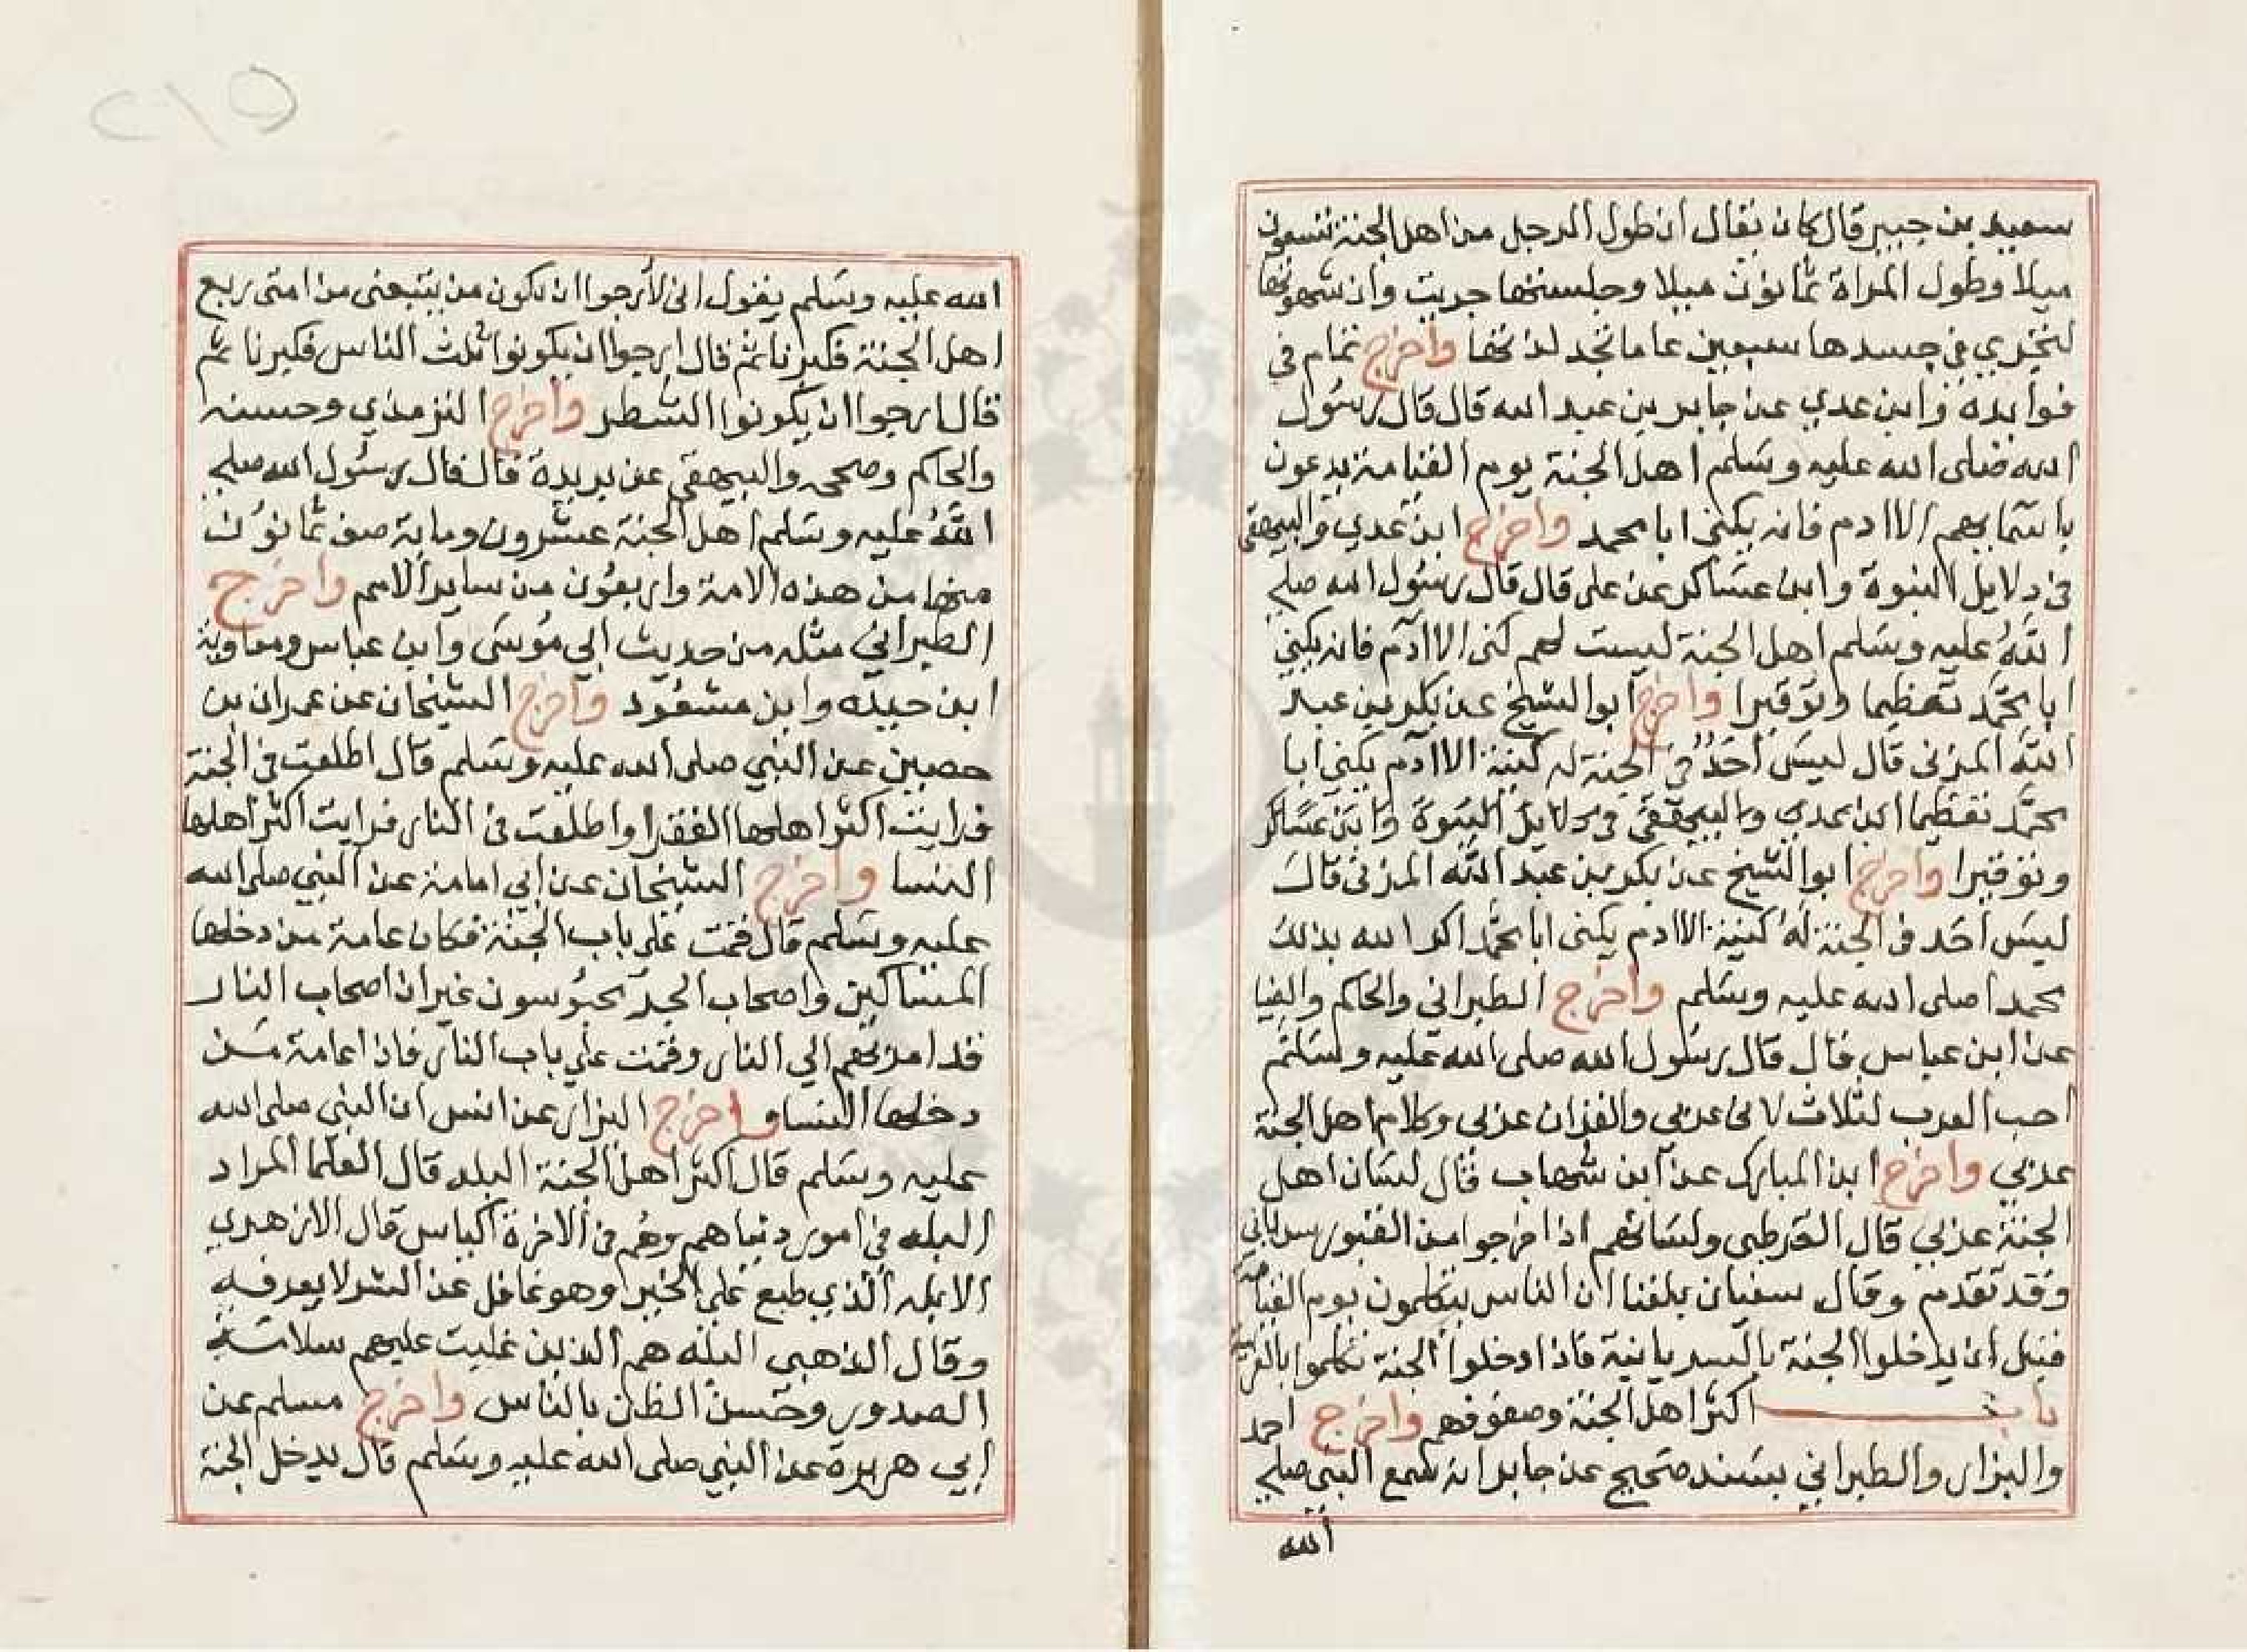 سعيد بن جبير قال كان يقال ان طول الرجل من اهل الجنة تسعون
ميلا وطول المراة ثمانون ميلا وجلستها جريب وان شهوتها
لتجري في جسدها سبعين عاما تجد لذتها واخرج تمام في
فوايده وابن عدي عن جابر بن عبد الله قال قال رسول
الله صلى الله عليه وسلم اهل الجنة يوم القيامة يدعون
باسمايهم الا ادم فانه يكنى ابا محمد واخرج ابن عدي والبيهقي
في دلايل النبوة وابن عساكر عن علي قال قال رسول الله صلي
الله عليه وسلم اهل الجنة ليست لهم كنى الا ادم فانه يكني
ابا محمد تعظيما وتوقيرا واخرج ابوا الشيخ عن بكر بن عبد
الله المزني قال ليس احد في الجنة له كنية الا ادم يكني ابا
محمد تعظيما ابن عدي والبيهقي في دلايل النبوة وابن عساكر
وتوقيرا واخرج ابوا الشيخ عن بكر بن عبد الله المزني قال
ليس احد في الجنة له كنية الا ادم يكنى ابا محمد اكرا لله بذلك
محمدا صلى الله عليه وسلم واخرج الطبراني والحاكم والضيا
عن ابن عباس قال قال رسول الله صلى الله عليه وسلم
احب العرب لثلاث لاني عربي والقران عربي وكلام اهل الجنة
عربي واخرج ابن المبارك عن ابن شهاب قال لسان اهل
الجنة عربي قال القرطبي ولسانهم اذا خرجوا من القبور سرياني
وقد تقدم وقال سفيان بلغنا ان الناس يتكلمون يوم القيامة
قبل ان يدخلوا الجنة بالسريانية فاذا دخلوا الجنة تكلموا بالعربية
باب اكثر اهل الجنة وصفوفهم واخرج احمد
والبزار والطبراني بسند صحيح عن جابر انه سمع النبي صلي
الله
٢١٥
الله عليه وسلم يقول اني لأرجوا ان يكون من يتبعني من امتي ربع
اهل الجنة فكبرنا ثم قال ارجوا ان يكونوا ثلث الناس فكبرنا ثم
قال ارجوا ان يكونوا الشطر واخرج الترمذي وحسنه
والحاكم وصححه والبيهقي عن بريدة قال قال رسول الله صلي
الله عليه وسلم اهل الجنة عشرون وماية صف ثمانون
منها من هذه الامة واربعون من ساير الامم واخرج
الطبراني مثله من حديث ابي موسى وابن عباس ومعاوية
ابن حيده وابن مسعود واخرج الشيخان عن عمران بن
حصين عن النبي صلى الله عليه وسلم قال اطلعت في الجنة
فرايت اكثر اهلها الفقرا واطلعت في النار فرايت اكثر اهلها
النسا واخرج الشيخان عن ابي امامة عن النبي صلى الله
عليه وسلم قال قمت على باب الجنة فكان عامة من دخلها
المساكين واصحاب الجد محبوسون غير ان اصحاب النار
قد امر بهم الي النار وقمت علي باب النار فاذا عامة من
دخلها النسا واخرج البزار عن انس ان النبي صلى الله
عليه وسلم قال اكثر اهل الجنة البله قال العلما المراد
البله في امور دنياهم وهم في الاخرة اكياس قال الازهري
الابله الذي طبع على الخير وهو غافل عن الشر لا يعرفه
وقال الذهبي البله هم الذين غلبت عليهم سلامة
الصدور وحسن الظن بالناس واخرج مسلم عن
ابي هريرة عن النبي صلى الله عليه وسلم قال يدخل الجنة